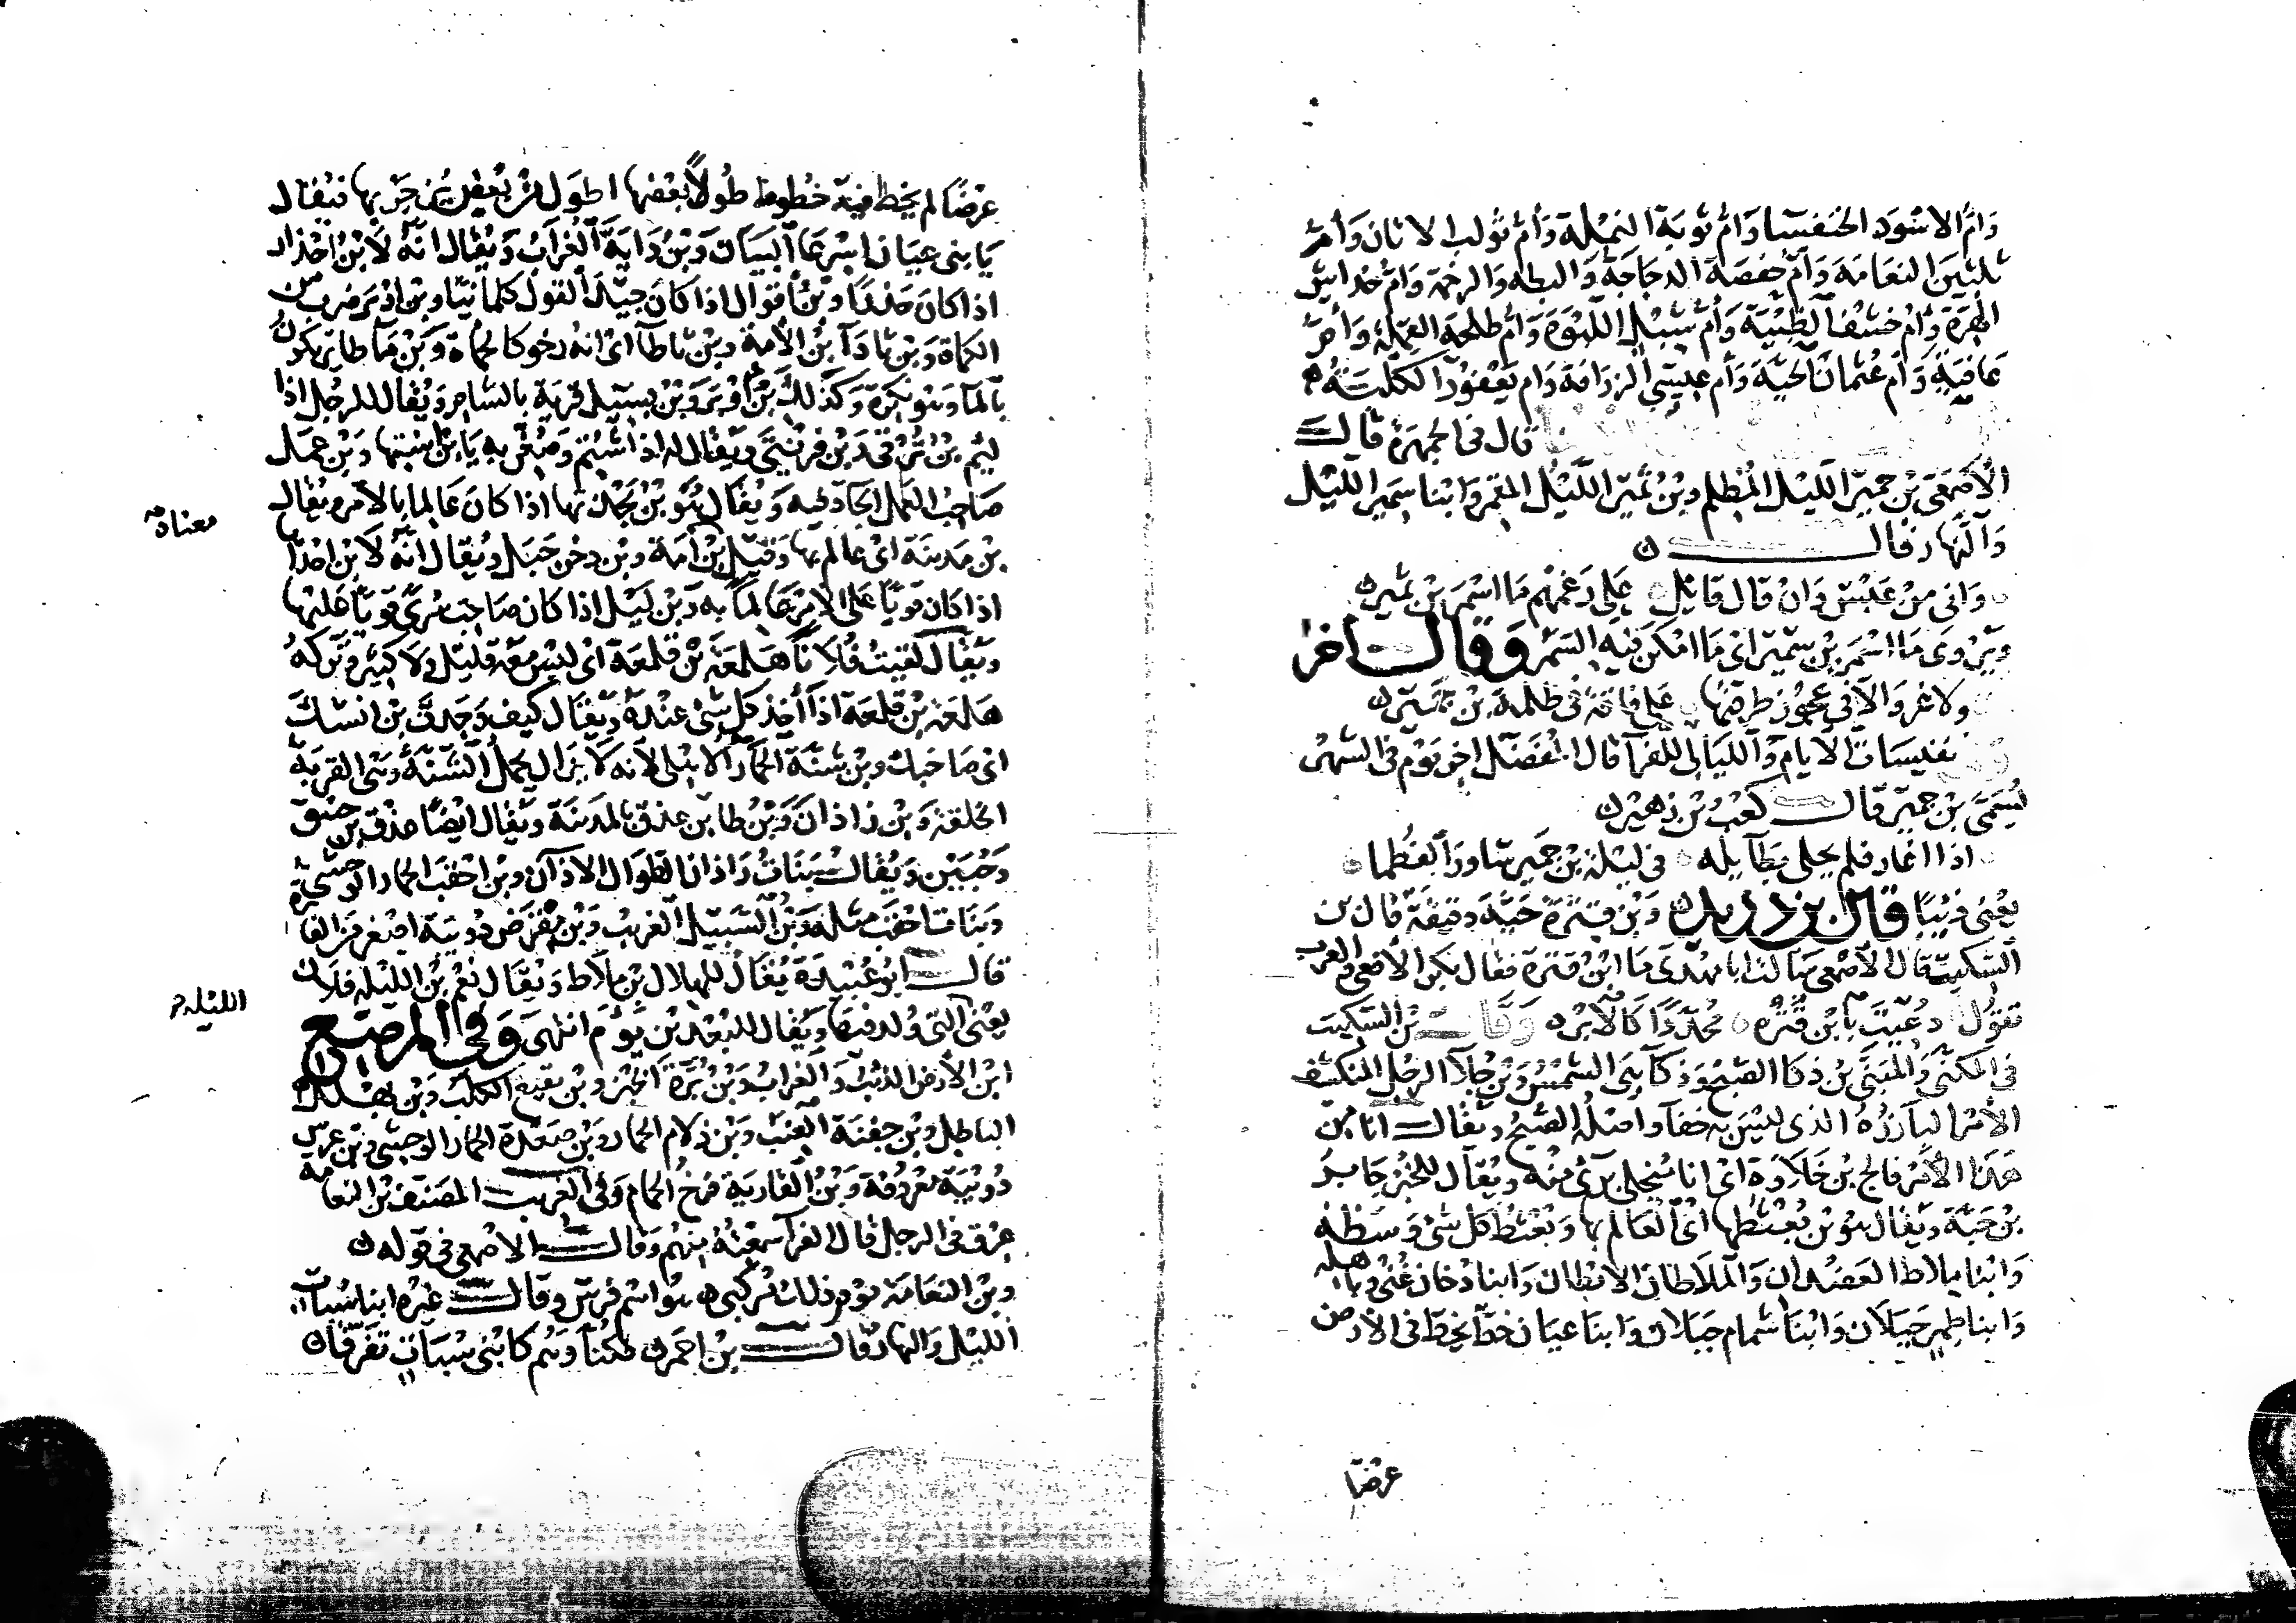 وَأمّ الاسْوَد الخنفسَا وَأمّ تَوبَة النمْلة وَأم تَولب الاتان وَأمّ
ثلثين النعَامَة وَأمّ حفصَة الدجاجَة وَالبطه والرخمة وَامّ خداش
الهرّة وَأم خشف الظبْيَة وَأم شبْل اللبْوَة وَأم طلحة القملة وَأمّ
عَافيَةٍ وَأم عُثمان الحيَّة وَأم عيسَى الزرافة وَام يَعْفوْر الكلْبَة
قال في الجمهرة قالـــ
الأصْمَعي بْن جميْر الليْل المُظلم وبْن ثميْر اللّيْل المقمر وَابْنا سَمير الليْل
وَالنهَار قالـــ
وَاني منْ عَبْس وَانْ قال قائل على رَغمهم مَا اسْمَر بْن ثمير
ويرْوى مَا اسْمَر بْن سَمير اى مَا امْكن فيْه السّمر وَقالـــ اخر
ولا غرْوَ الا في عجُوْز طرقتها على فاقة في ظلمة بْن جميْر
نفيسَات الأيام وَالليَالى للفرآ قال المفضل اخر يَوْم في الشهْر
يُسَمّى بْن جمير قالـــ كعْب بْن زهير
اذا اغار فلم يحلى بطايله في ليْلة بْن جمير سَاور الفطما
يعْنى ذيْبًا قال بن دريد وَبْن قتْرة حيَّة دقيقة قال بن
السّكيت قال الأصْمعي سَالت ابا مهْدى مَا ابْن قتْرة فقال بكر الأفعى والعرب
تقول دُعيت بابْن قتْره مُحدّدًا كالأبْره وَقالـــ بن السّكيت
في المكنّى وَالمبَنى بْن ذكا الصّبْح وَذكآ هى الشمْس وَبْن جلا الرجل المنكشف
الأمْر البَارزُه الذى ليْسَ به خفآ واصْله الصّبْح ويُقالـــ انا من
هَذا الأمْر فالج بْن خلاوَة اى انا متخلى برئ منْه ويُقال للخبْز جَابر
بْن حَبَّة ويُقال هو بْن بُعْثطها اى العَالم بها وَبُعْثط كل شى وَسَطه
وَابْنا ملاط العَضُدان وَالملاطان الابْطان وَابنا دُخان غنى وباهله
وَابنا طمر جَبَلان وَابْنا شمام جبَلان وَابنا عيان خطّ يخطّ في الأرض
عرْضًا
عرْضًا لم يخط فيْه خطوط طُولاً بَعْضهَا اطوَل منْ بَعْض ثم يزْجر بها فيُقال
يَا بنى عيَان اسْرعَا البيَان وَبْن دَايَة الغرَاب وَيُقال انه لابْن احْذار
اذا كان حَذرًا وبْن أقوال اذا كان جيّد القول كلمانيّا وبْن اوْبَر ضرب من
الكماة وَبْن ثادَآ بْن الأمَة وبْن ثاطآ اى انه رخو كالحمأة وَبْن مَا طاير يكون
بالمآ وَهو نكرَة وَكذلك بْن اوْبَر وَبْن بسيْل قريَة بالشام ويُقال للرجُل اذا
ليم بْن تُرْنى وَبْن فرْتنى وَيُقال له اذا شُتم وَصُغر به يَا بْن اسْتها وَبْن عمَل
صَاحب العمل الجاد فيه وَيُقال هُو بْن بَجْدتها اذا كان عَالما بالأمر ويُقال
معناه
بْن مَدينَة اىْ عالم بها وَقيْل بْن أمَة وبْن دخن جَبَل ويُقال انه لابْن احْذاها
اذا كان قويًا على الأمر عالماً به وَبْن ليْل اذا كان صَاحب سرى قويًا عليْها
ويُقال لقيت فُلانًا هَلمعَة بْن قلمعَة اى ليْس معَه قليْل ولا كثير وتَركه
هَلمعَة بْن قلمعَة اذا أخذ كل شئ عنْدهُ ويُقال كيف وَجدت بْن انسْك
اى صَاحبك وبْن شنَّة الحمَار الأهْلى لأنه لا يزال يحمل الشنّة وَهى القرْبَة
الخلقة وَبْن زاذان وَبْن طاب عذق بالمديْنة ويُقال ايْضًا عذق بْن حبَيْق
وَحُبَيْن وَيُقالـــ بَنات زاذان الطوَال الاذآن وبْن احْقَب الحمار الوحشى
وَبَنات احْقب مثله وَبْن السّبيْل الغريْب وَبْن مقرَض دُويْبَة اصْغر من الفارة
قالـــ ابو عُبَيْدة يُقال للهلال بْن ملاط ويُقال نعْم بْن الليْلة فلان
الليله
يعْنى التى ولد فيْهَا ويُقال للبُعْد بْن يَوْم انتهى وَفي المرصّع
ابن الأرض الذئب وَالغراب وَبْن بَرَّة الخبْز وبْن بقيع الكلب وَبْن بهْلل
الباطل وبْن جفنة العنب وَبْن زلام الحمار وَبْن صَعْدة الحمار الوحشى وَبْن عرْس
دُويْبَة مَعْروُفة وَبْن القاريَة فرْخ الحمام وَفي الغريب المصنف بْن النعامة
عِرْق في الرجل قال الفرآ سَمعْته منْهم وَقالـــ الأصْمعى في قوله
وبْن النعَامَة يَوْم ذلك مَرْكبى هُو اسْم فرَس وَقالـــ غيْره ابنا سُبات
الليْل وَالنهار قالـــ بْن احْمر فكنّا وَهُم كابْنى سُبَاتٍ تفرّقا